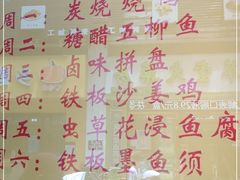 一：炭烧
周二：糖醋五柳鱼
周三：卤味拼盘
周四：铁板沙姜鸡
周五：虫草花浸鱼腐
周六：铁板墨鱼须